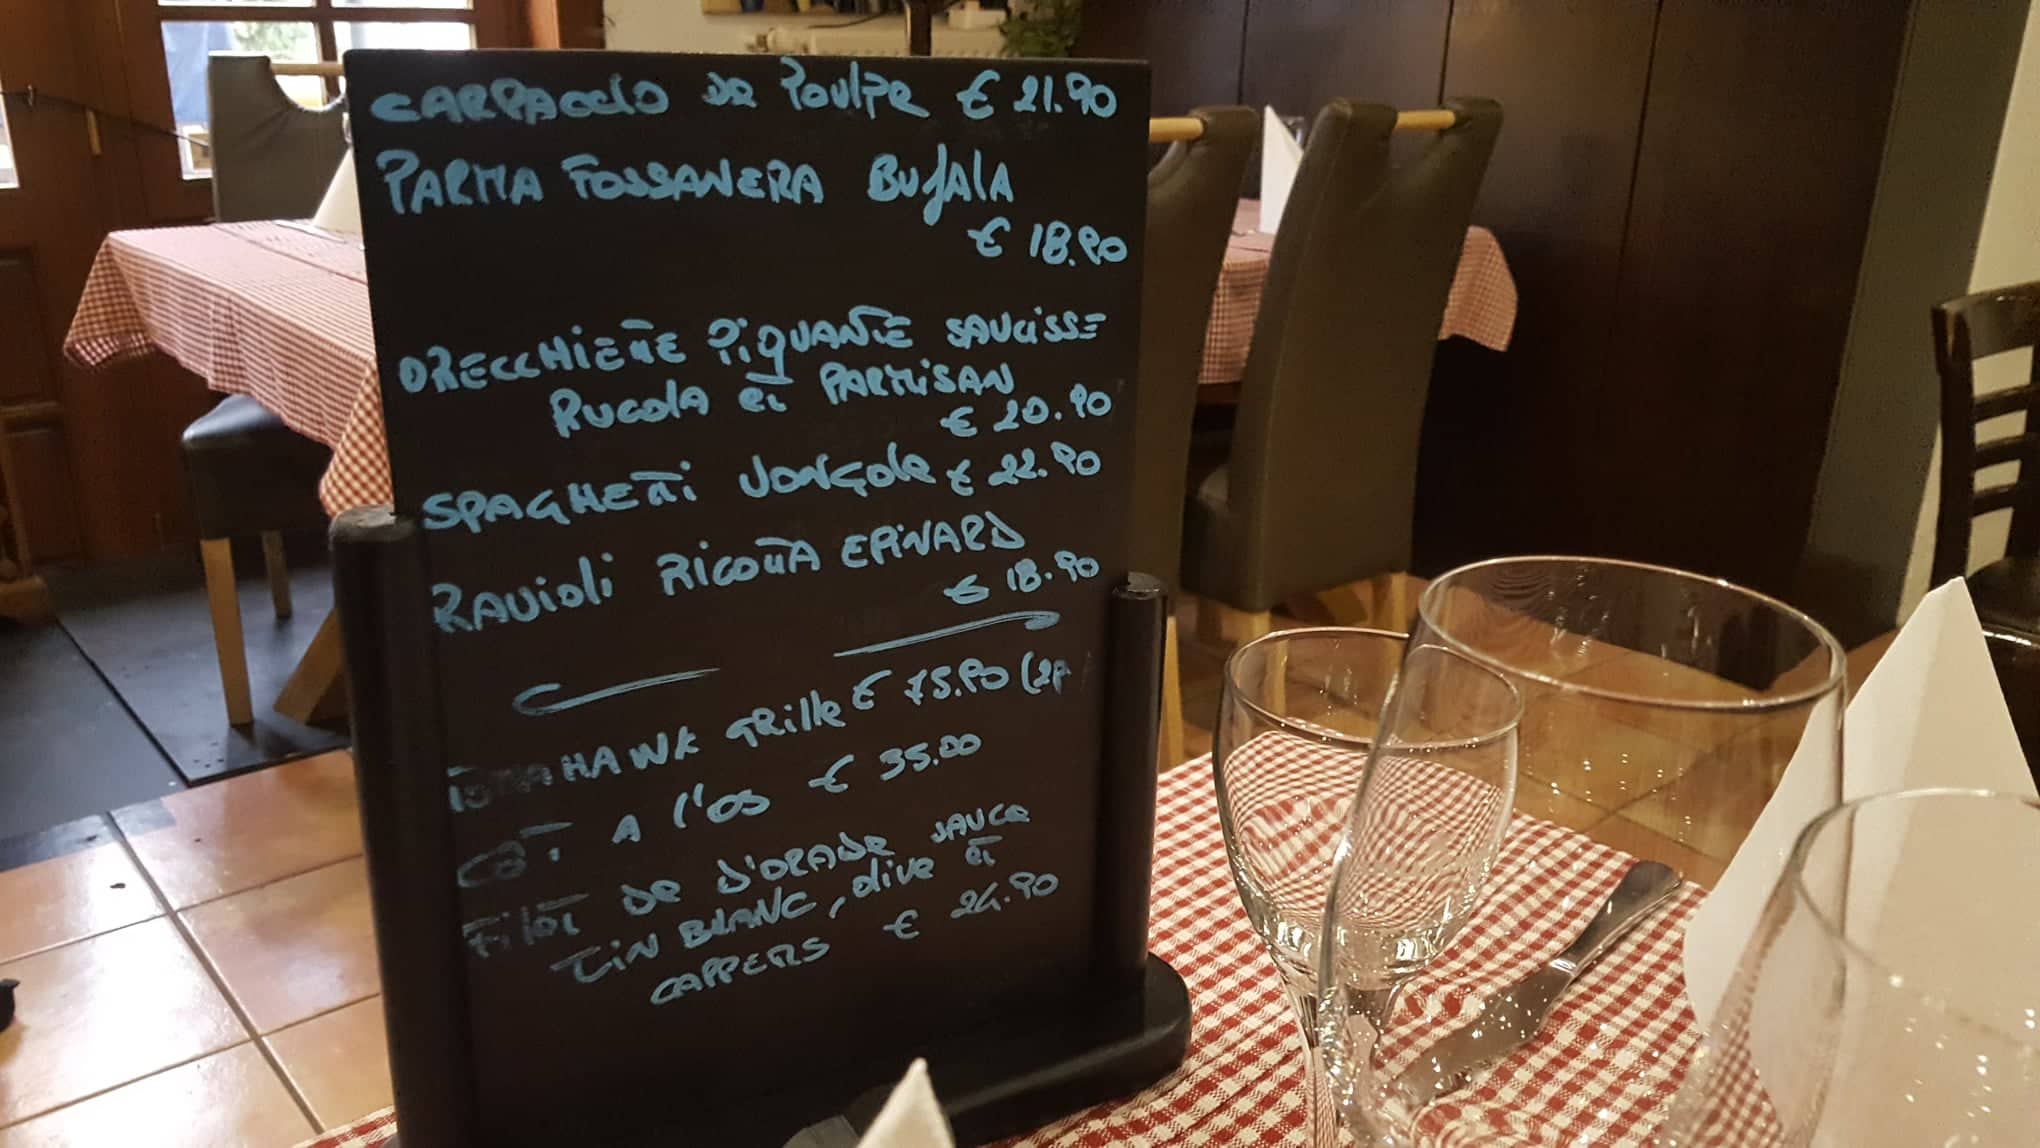 CARPACCIO de Poulpe € 21.90
PARMA FOSSANERA BUFALA
€ 18.90
ORECCHIETTE PiQUANTE SAUCISSE
RUCOLA ET PARMISAN
€ 20.90
SPAGHETTi VONGOLE € 22.90
RAVIOLI RICOTTA EPINARD
€ 18.90
TOMAHAWK GRille € 75.90 (2P
A l'OS € 35.00
FiLET DE D'ORADE SAUCE
BLANC, olive ET
CAPPERS € 24.90